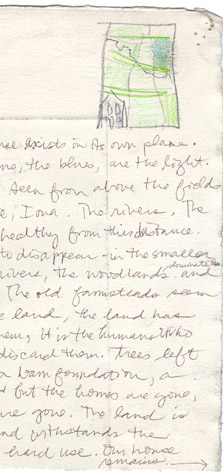 exists in its own plane.
the blues, are the light.
Seen from above the fields
Iowa. The rivers. The
healthy from this distance.
to disappear - in the smaller
rivers, the woodlands and
The old farmsteads seem
land, the land has
it is the humans who
discard them. Trees left
a barn foundation, a
but the homes are gone,
are gone. The land is
and withstands the
hard use. Our house
remains